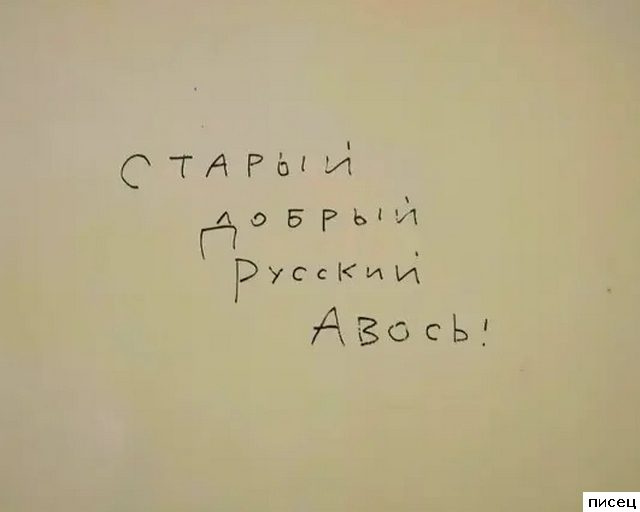 СТАРЫЙ
ДОБРЫЙ
РУССКИЙ
АВОСЬ!
писец